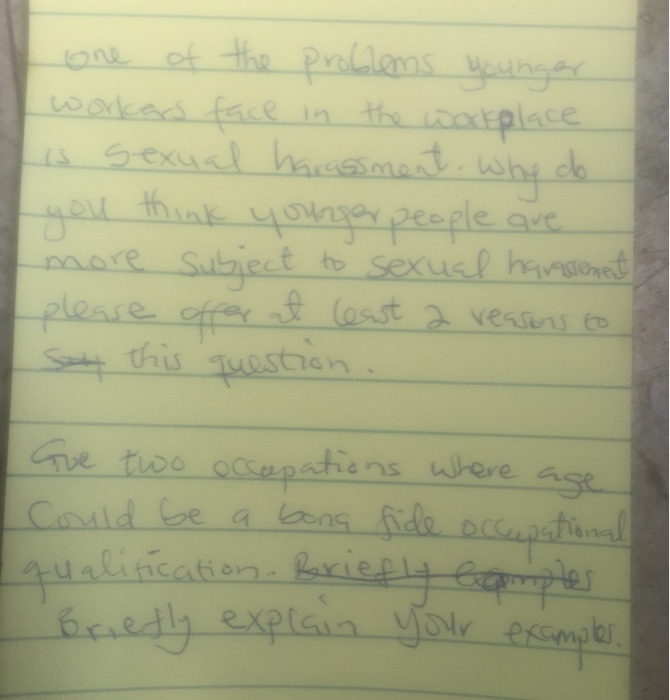 one of the problems younger
workers face in the workplace
is sexual harassment. Why do
you think younger people are
more subject to sexual harassment
please offer at least 2 reasons to
this question.
Give two occupations where age
Could be a bona fide occupational
qualification. Briefly examples
Briefly explain your examples.